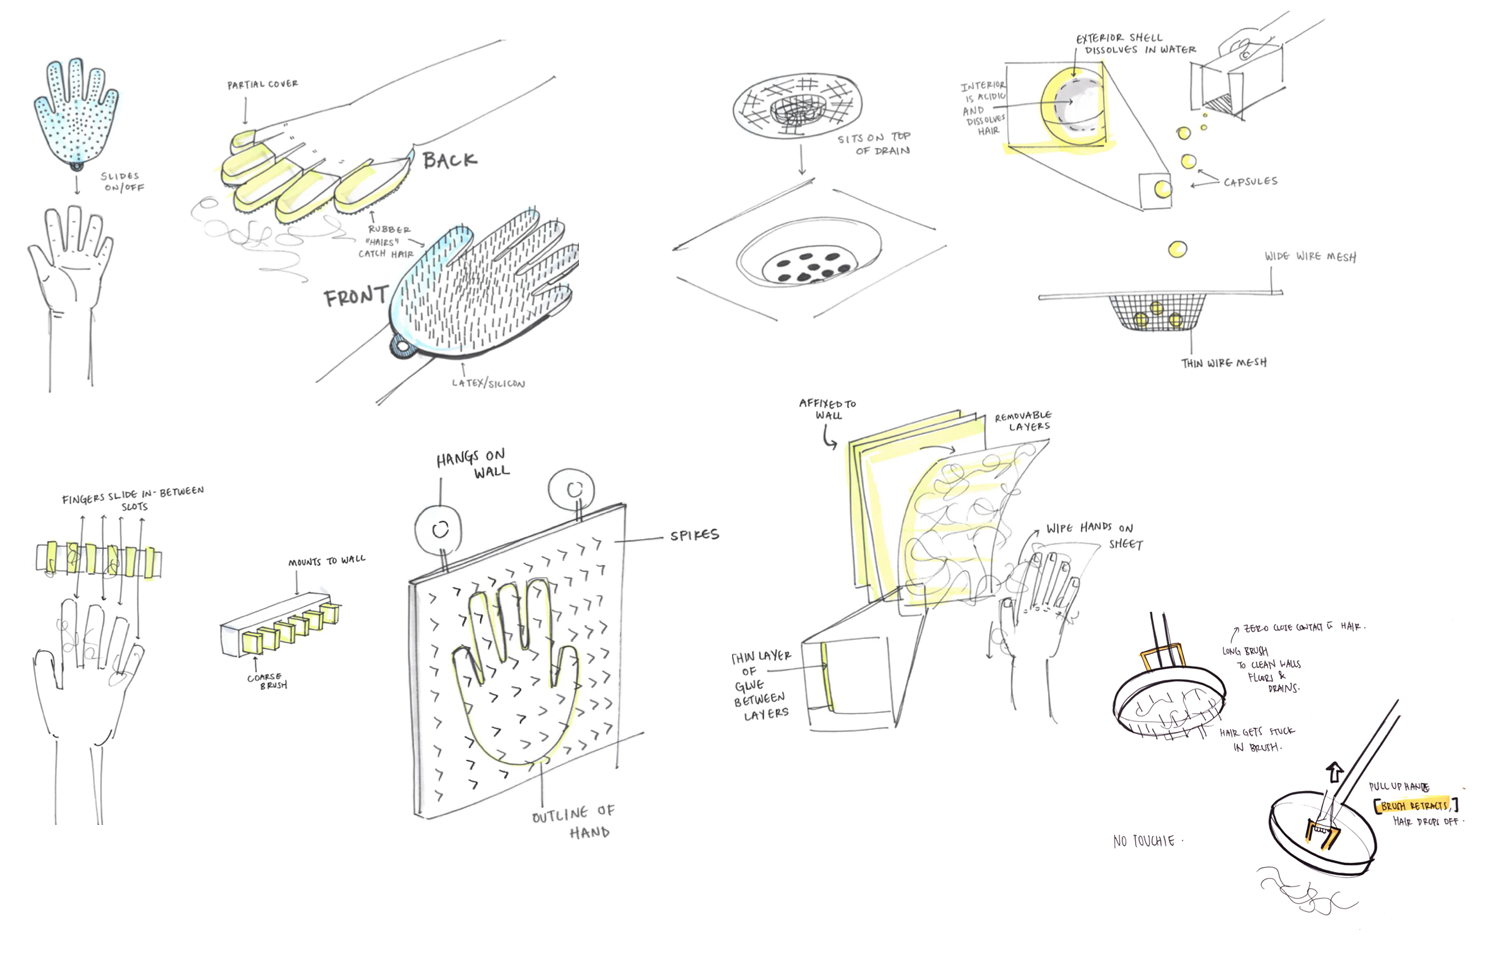 SLIDES
ON/OFF
PARTIAL COVER
BACK
RUBBER
"HAIRS"
CATCH HAIR
FRONT
LATEX/SILICON
SITS ON TOP
OF DRAIN
EXTERIOR SHELL
DISSOLVES IN WATER
INTERIOR
IS ACIDIC
AND
DISSOLVES
HAIR
CAPSULES
WIDE WIRE MESH
THIN WIRE MESH
FINGERS SLIDE IN-BETWEEN
SLOTS
MOUNTS TO WALL
COARSE
BRUSH
HANGS ON
WALL
SPIKES
OUTLINE OF
HAND
AFFIXED TO
WALL
REMOVABLE
LAYERS
WIPE HANDS ON
SHEET
THIN LAYER
OF
GLUE
BETWEEN
LAYERS
ZERO CLOSE CONTACT HAIR.
LONG BRUSH
TO CLEAN WALLS
FLOORS &
DRAINS.
HAIR GETS STUCK
IN BRUSH.
PULL UP HANDLE
[BRUSH RETRACTS,]
HAIR DROPS OFF.
NO TOUCHIE.